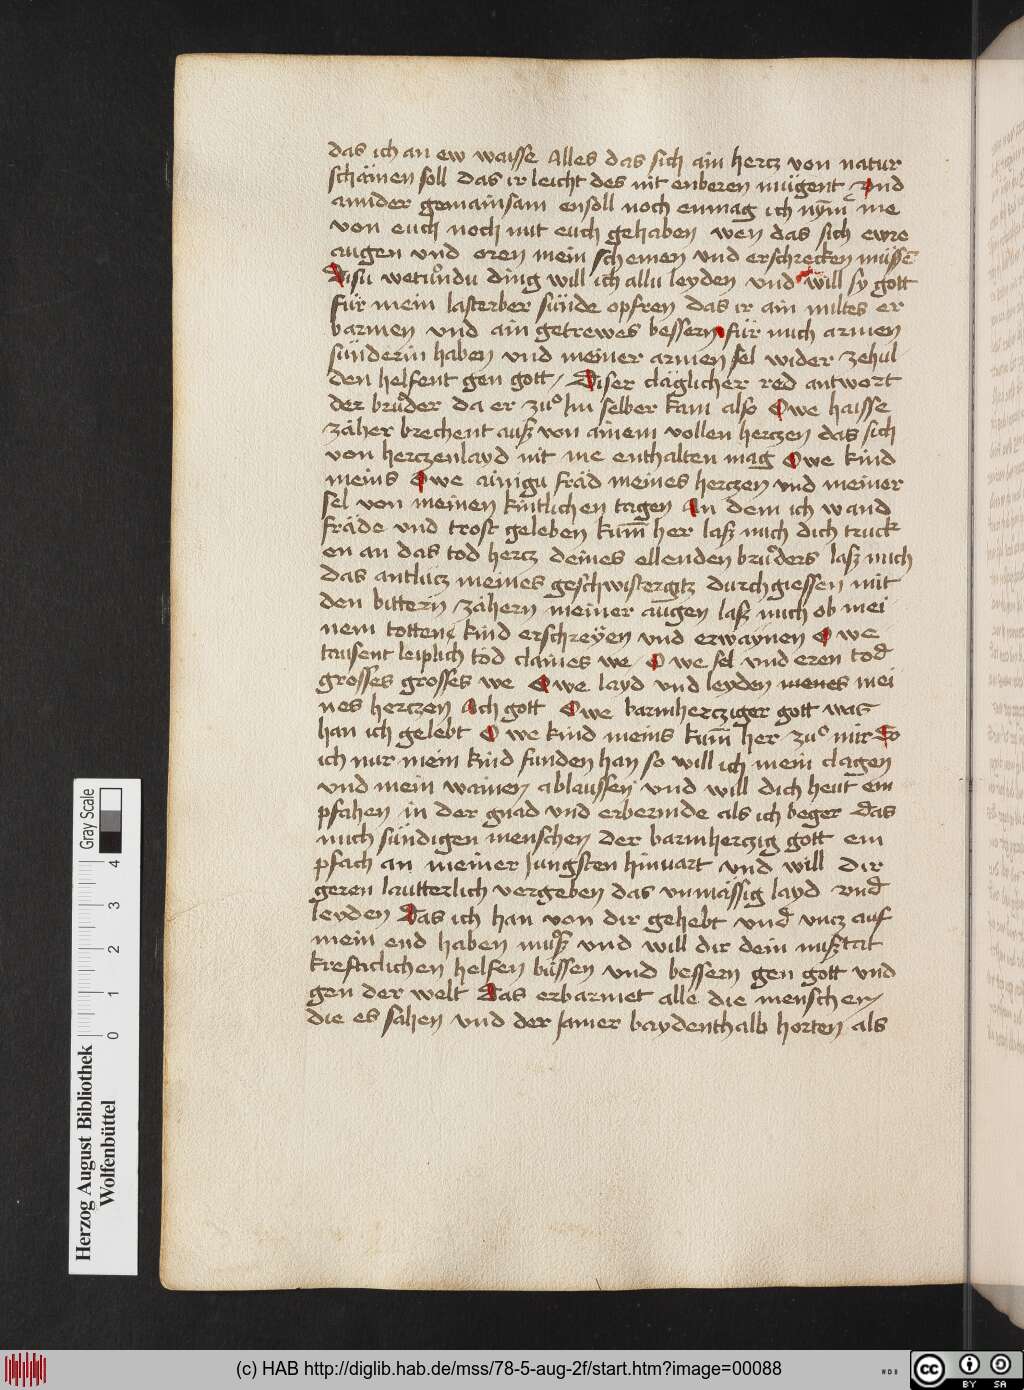 das ich an ew waisse Alles das sich ain hertz von natur
schämen soll das ir leicht des nit enberen mügent Vnd
ainider gemainsam ensoll noch enmag ich nym̄ me
von euch noch mit euch gehaben wen das sich ewre
augen vnd oren mein schemen vnd erschrecken müssē
Disu wetůndu ding will ich allu leyden vnd will sy gott
für mein lasterber sünde opfren das ir ain miltes er
barmen vnd ain getrewes bessern für mich armen
sünderin haben vnd meiner armen sel wider zehul
den helfent gen gott / Diser cläglicher red antwort
der brůder da er zuͦ Im selber kam also Owe haisse
zäher brechent auß von ainem vollen hertzen das sich
von hertzenlayd nit me enthalten mag Owe kind
meins Owe ainigu fräd meines hertzen vnd meiner
sel von meinen kintlichen tagen An dem ich wand
fräde vnd trost geleben kum̄ her laß mich dich truck
en an das tod hertz deines ellenden brůders laß mich
das antlütz meines geschwistergitz durchgiessen mit
den bittern zähern meiner augen laß mich ob mei
nem totten kind erschreyen vnd erwaynen O we
tausent leiplich tod claines we O we sel vnd eren tod
grosses grosses we Owe layd vnd leyden menes mei
nes hertzen Ach gott Owe barmhertziger gott was
han ich gelebt O we kind meins kum̄ her zuͦ mir So
ich nur mein kind funden han so will ich mein clagen
vnd mein wainen ablaussen vnd will dich heut em
pfahen in der gnad vnd erbermde als ich beger das
mich sündigen menschen der barmhertzig gott em
pfach an meiner Jungsten hinuart vnd will dir
geren lautterlich vergeben das vnmässig layd vnd
leyden Das ich han von dir gehebt vnd vntz auf
mein end haben můß vnd will dir dein mißtat
krefticlichen helfen büssen vnd bessern gen gott vnd
gen der welt Das erbarmet alle die menschen
die es sahen vnd der Jamer baydenthalb horten als
Gray Scale
4
3
2
1
0
Herzog August Bibliothek
Wolfenbüttel
(c) HAB http://diglib.hab.de/mss/78-5-aug-2f/start.htm?image=00088
cc BY SA